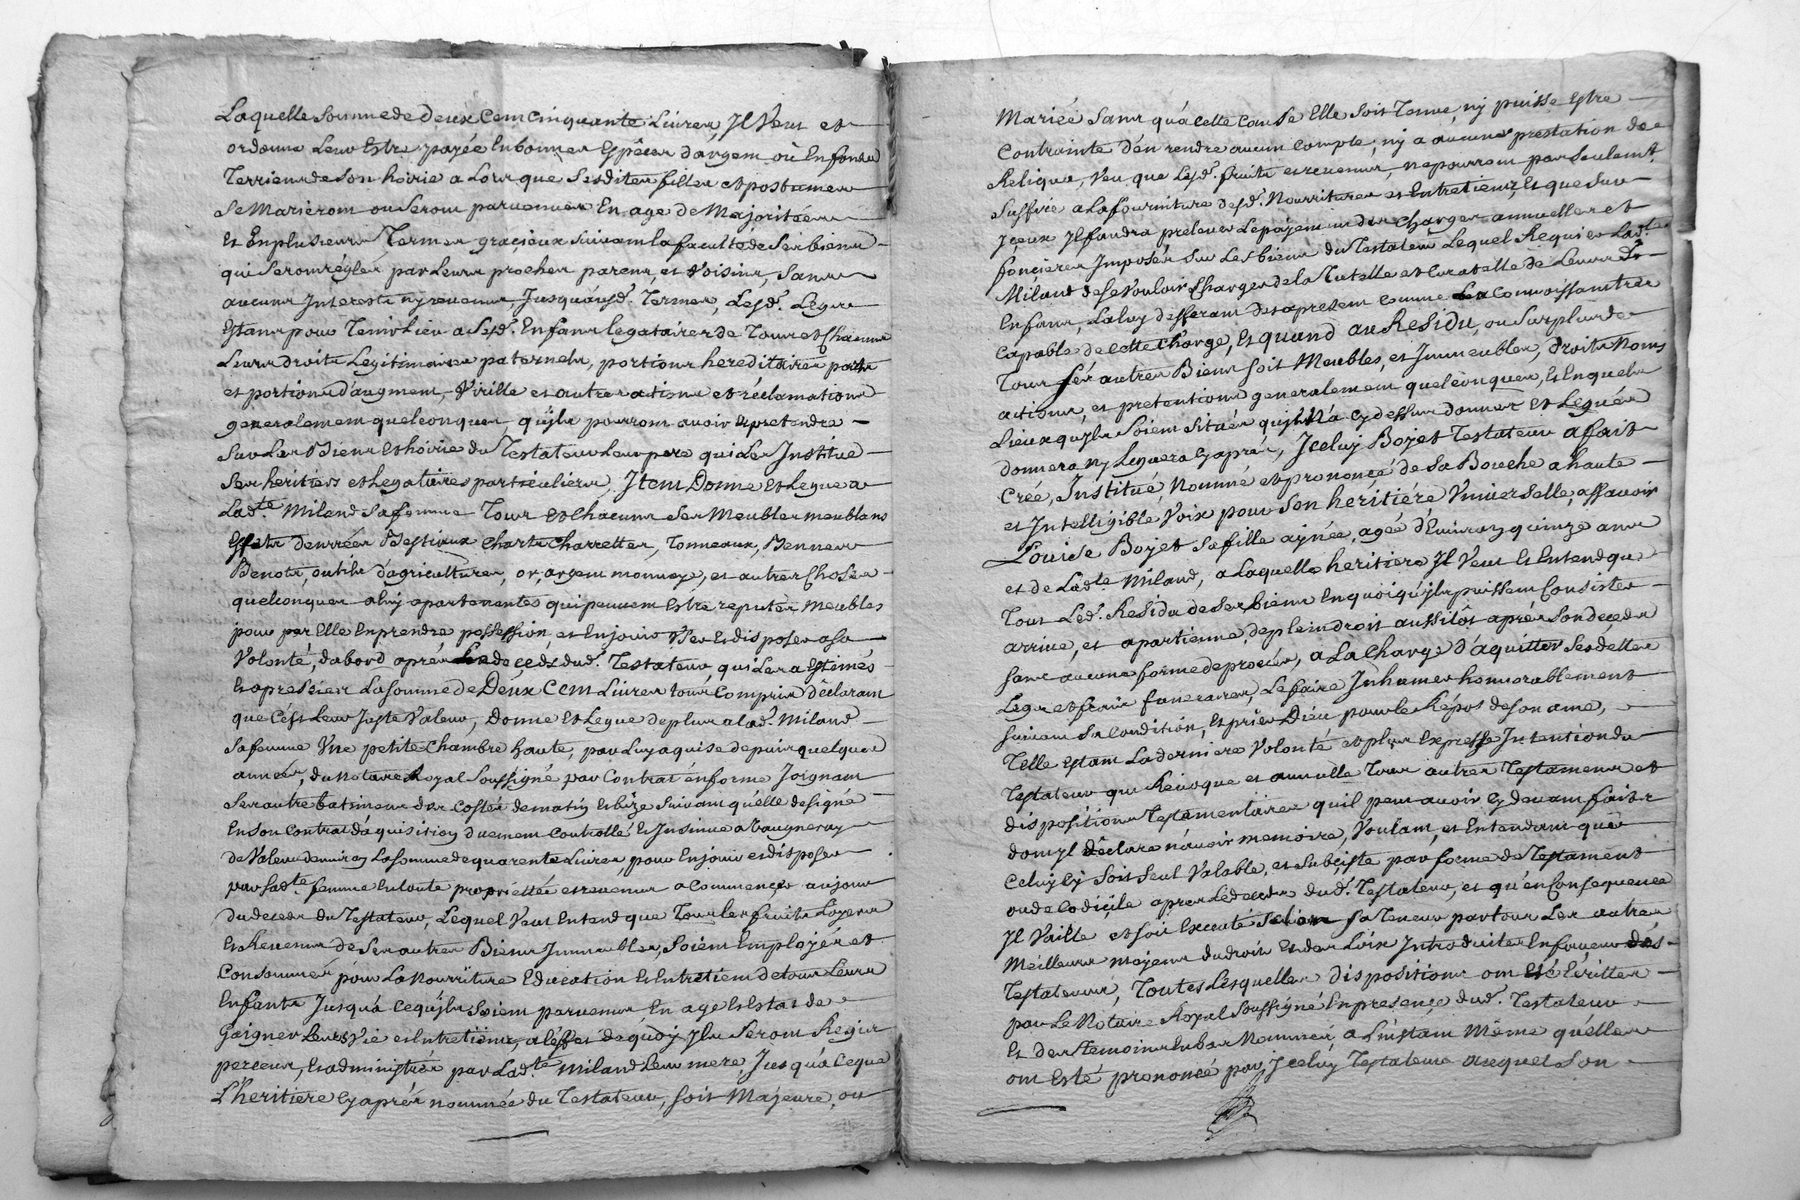 Laquelle somme de deux cent cinquante Livres, Il Veut et
ordonne Leur Estre payée En bonnes Espéces d'argent où En fondz
Terriens de son hoirie a Lors que Sesdites filles et postumes
Se Marieront ou Seront parvenues En age de Majoritées
Et En plusieurs Termes graçieux suivant la faculté de Ses biens
qui Seront régléz par Leurs proches parens, et Voisins, Sans
aucuns Interests ny revenus Jusqu'auxd. Termes, Lesd. Legs
Estans pour Tenir Lieu a Sesd. Enfans legataires de Tous et Chacuns
Leurs droits Legitimaires paternels, portions hereditaires parts
et portions d'augment, Virille et autres actions et réclamations
generalement quelconques qu'jls pourront avoir et pretendre
Sur Les Biens Et hoirie du Testateur Leur pere qui Les Institue
Ses heritiers et Legatáires particuliers, Item Donne Et Legue a
Ladte. Miland Sa femme Tous Et Chacuns Ses Meubles meublans
Effets denrrées Bestiaux Chars Charrettes, Tonneaux, Bennes
Benots, outils d'agriculture, or, argent monnoye, et autres Choses
quelconques a luy apartenantes qui peuvent Estre reputés Meubles
pour par Elle En prendre possession et En jouir User Et disposer a sa
Volonté, d'abord aprés Le decéds dud. Testateur, qui Les a Estimés
Et apreciés La somme de Deux Cent Livres tout Compris déclarant
que C'est Leur Juste Valeur, Donne Et Legue de plus a lad. Miland
Sa femme Une petite Chambre haute, par Luy aquise depuis quelques
années, du Notaire Royal Soussigné par Contrat en forme Joignant
Ses autres batimens des Costés de matin Et bize Suivant qu'elle designé
En son Contrat d'aquisition duement Controllé Et Insinué a Vaugneray
de Valeur d'environ La somme de quarente Livres, pour En jouir et disposer
par Sadte. femme En toute propriettée et revenus a Commencer au jour
du decéds du Testateur, Lequel Veut Entend que Tous les fruits Loyers
Et Revenus de Ses autres Biens Immeubles, Soient Employés et
Consommés pour La Nourriture Education Et Entretiens de tous Leurs
Enfants Jusqu'a ce qu'jls Soient parvenus En age et Estat de
Gaigner Leurs Vie et Entretiens, a l'effet de quoy Ils Seront Regis
perceus, Et administrés par Ladte. Miland Leur mere, Jusqu'a ce que
L'heritiére Cyaprés nommée du Testateur, soit Majeure, ou
Mariée Sans qu'a Cette Cause Elle soit Tenue, ny puisse Estre
Contrainte d'en rendre aucun Compte, ny a aucunes prestation de
Reliqua, Veu que Lesd. fruits et revenus, ne pourront pas Seulemt.
Suffire a La fourniture desd. Nourriture et Entretiens, Et que Sur
Iceux Il faudra prelever Le payement des Charges annuelles et
fonçieres Imposés Sur Les biens du Testateur Lequel Requier Ladte.
Miland de Se Vouloir Charger de la Tutelle et Curatelle de Leurs Ds.
Enfans, La luy defferant des apresent Comme La Connoissant tres
Capable de Cette Charge, Et quand au Residu, ou Surplus de
Tous Ses autres Biens soit Meubles, et Immeubles, droits Noms
actions, et pretentions generalement quelconques, Et En quels
Lieux qu'jls Soient Situés qu'jl N'a Cy dessus donner et Leguér
donnera Ny Leguera Cyaprés, Iceluy Bojet Testateur a fait
Créé, Institué, Nommé et prononçé de Sa Bouche a haute
et Intelligible Voix pour Son héritiére Universelle, assavoir
Louise Bojet Safille aynée, agée d'Environ quinze ans
et de Ladte. Miland, a Laquelle heritiere Il Veut Et Entend que
Tout Led. Residu de Ses biens En quoi qu'jls puissent Consister
arrive, et apartienne, de plein droit aussitôt aprés Son decéds
sans aucune forme de procés, a La Charge D'aquitter Ses dettes
Legs et frais funeraires, Le faire Inhumer honnorablement
suivant Sa Condition, Et prier Dieu pour le Répos de Son ame,
Telle estant La derniere Volonté et plus Expresse Intention du
Testateur qui Révoque et annulle Tous autres Testamens et
dispositions Testamentaires qu'il peut avoir Cy devant faits
dont Il Déclare n'avoir memoire, Voulant, et Entendant que
Celuy Cy soit Seul Valable, et Subçiste par forme de Testament
ou de Codiçile apres Le decéds dud. Testateur, et qu'en Consequence
Il Vaille et soit Executé Selon Sa Teneur par tous Les autres
Meilleurs moyens du droit Et des Loix Introduites En faveur des
Testateurs, Toutes Lesquelles dispositions ont Eté Ecrittes
par Le Notaire Royal Soussigné En presençe dud. Testateur
Et des Temoins En bas Nommés, a L'instant Même qu'elles
ont Esté prononcé par Iceluy Testateur auquel Son